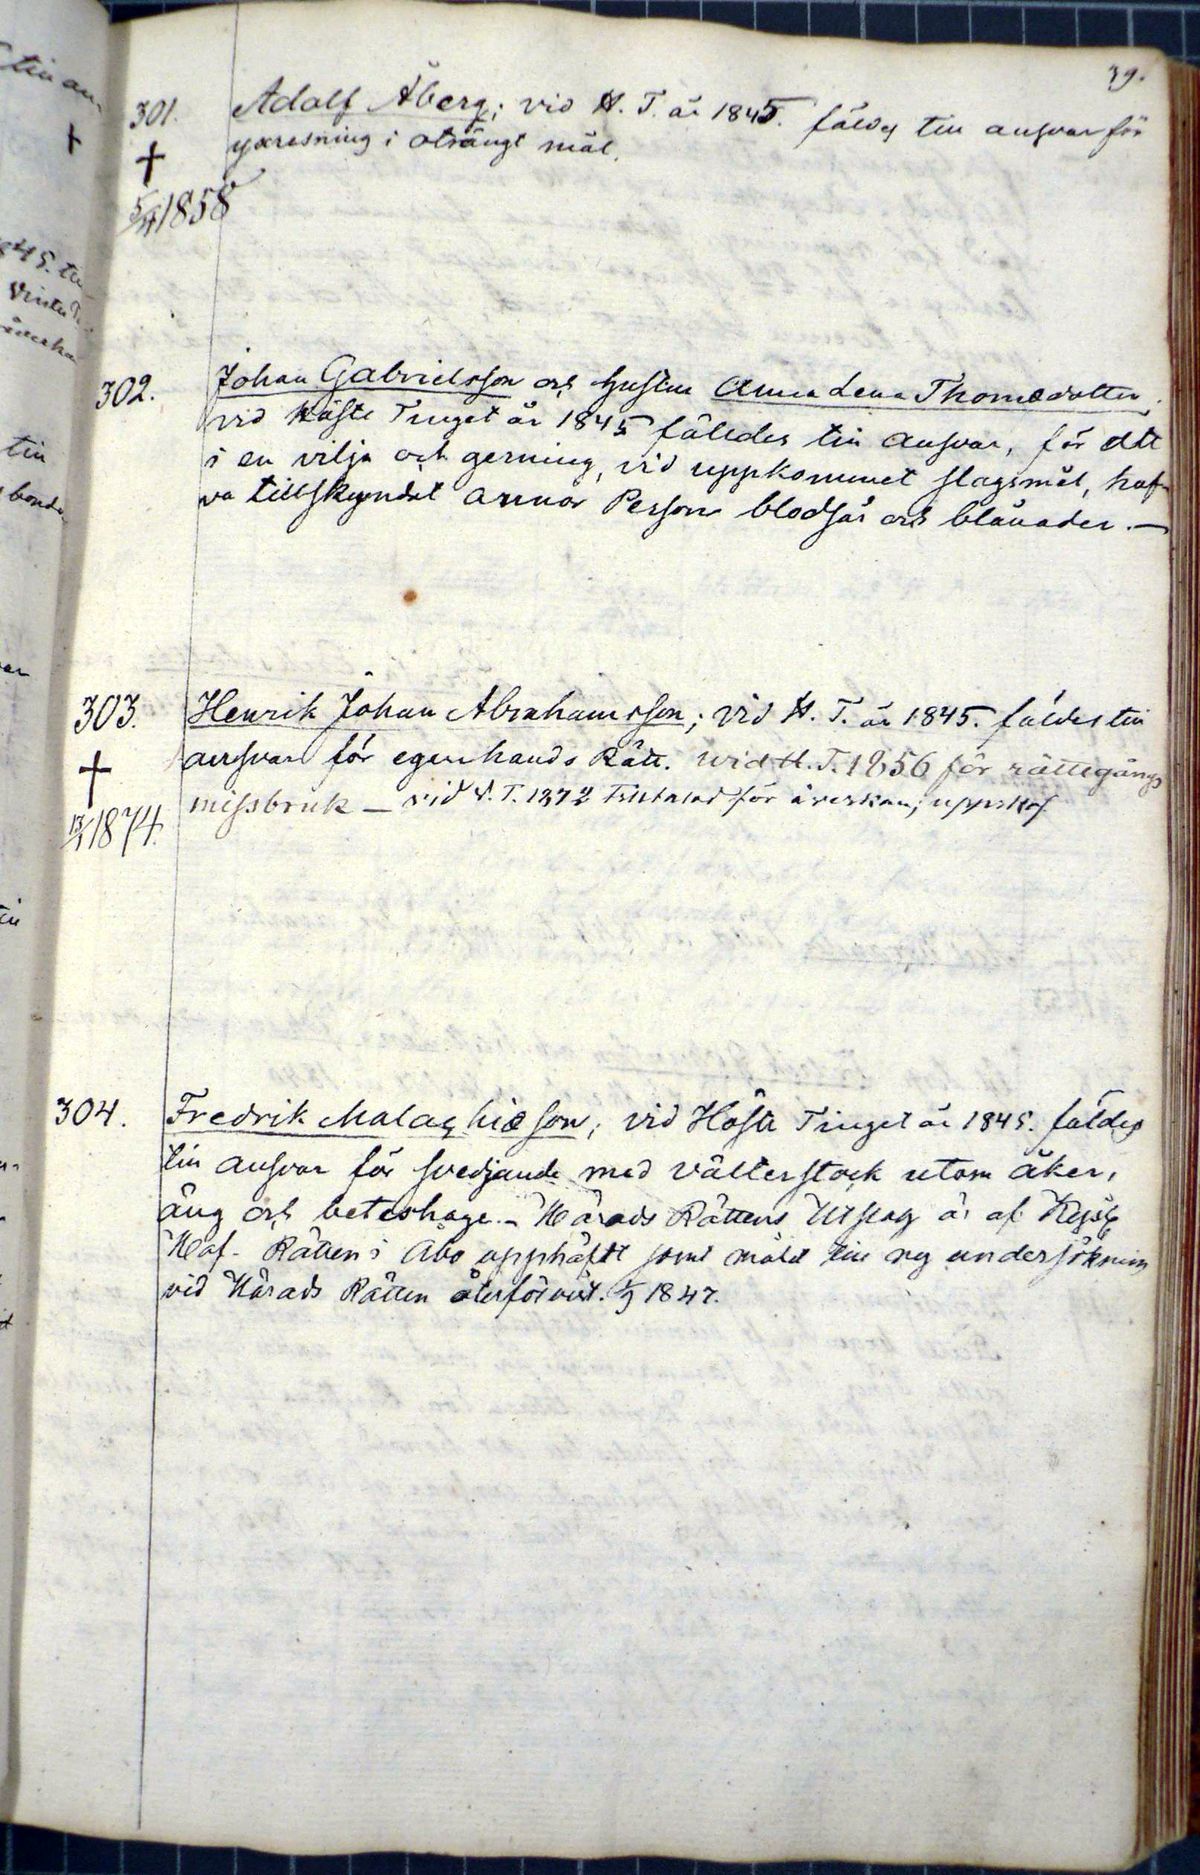 39.
301. Adolf Åberg; vid H. T. år 1845. fäldes till ansvar för
yxresning i oträngt mål.
†
5/4 1858
302. Johan Gabrielsson och hustru Anna Lena Thomædotter,
vid Höste Tinget år 1845 fälldes till ansvar, för det
i en vilja och gerning, vid uppkommet slagsmål, haf-
va tillskyndat annor Person blodsår och blånader. —
303. Henrik Johan Abrahamsson; vid H. T. år 1845. fäldes till
ansvar för egenhands Rätt. wid H. T. 1856 för rättegångs
† missbruk — vid V. T. 1872 tilltalad för åverkan; uppskof
1874.
304. Fredrik Malachiæson; vid Höste Tinget år 1845. fäldes
till ansvar för svedjande med välterstock utom åker,
äng och beteshage. — Härads Rättens Utslag är af Kejs.
Hof- Rätten i Åbo upphäfdt samt målet till ny undersökning
vid Härads Rätten återförvist. 1847.